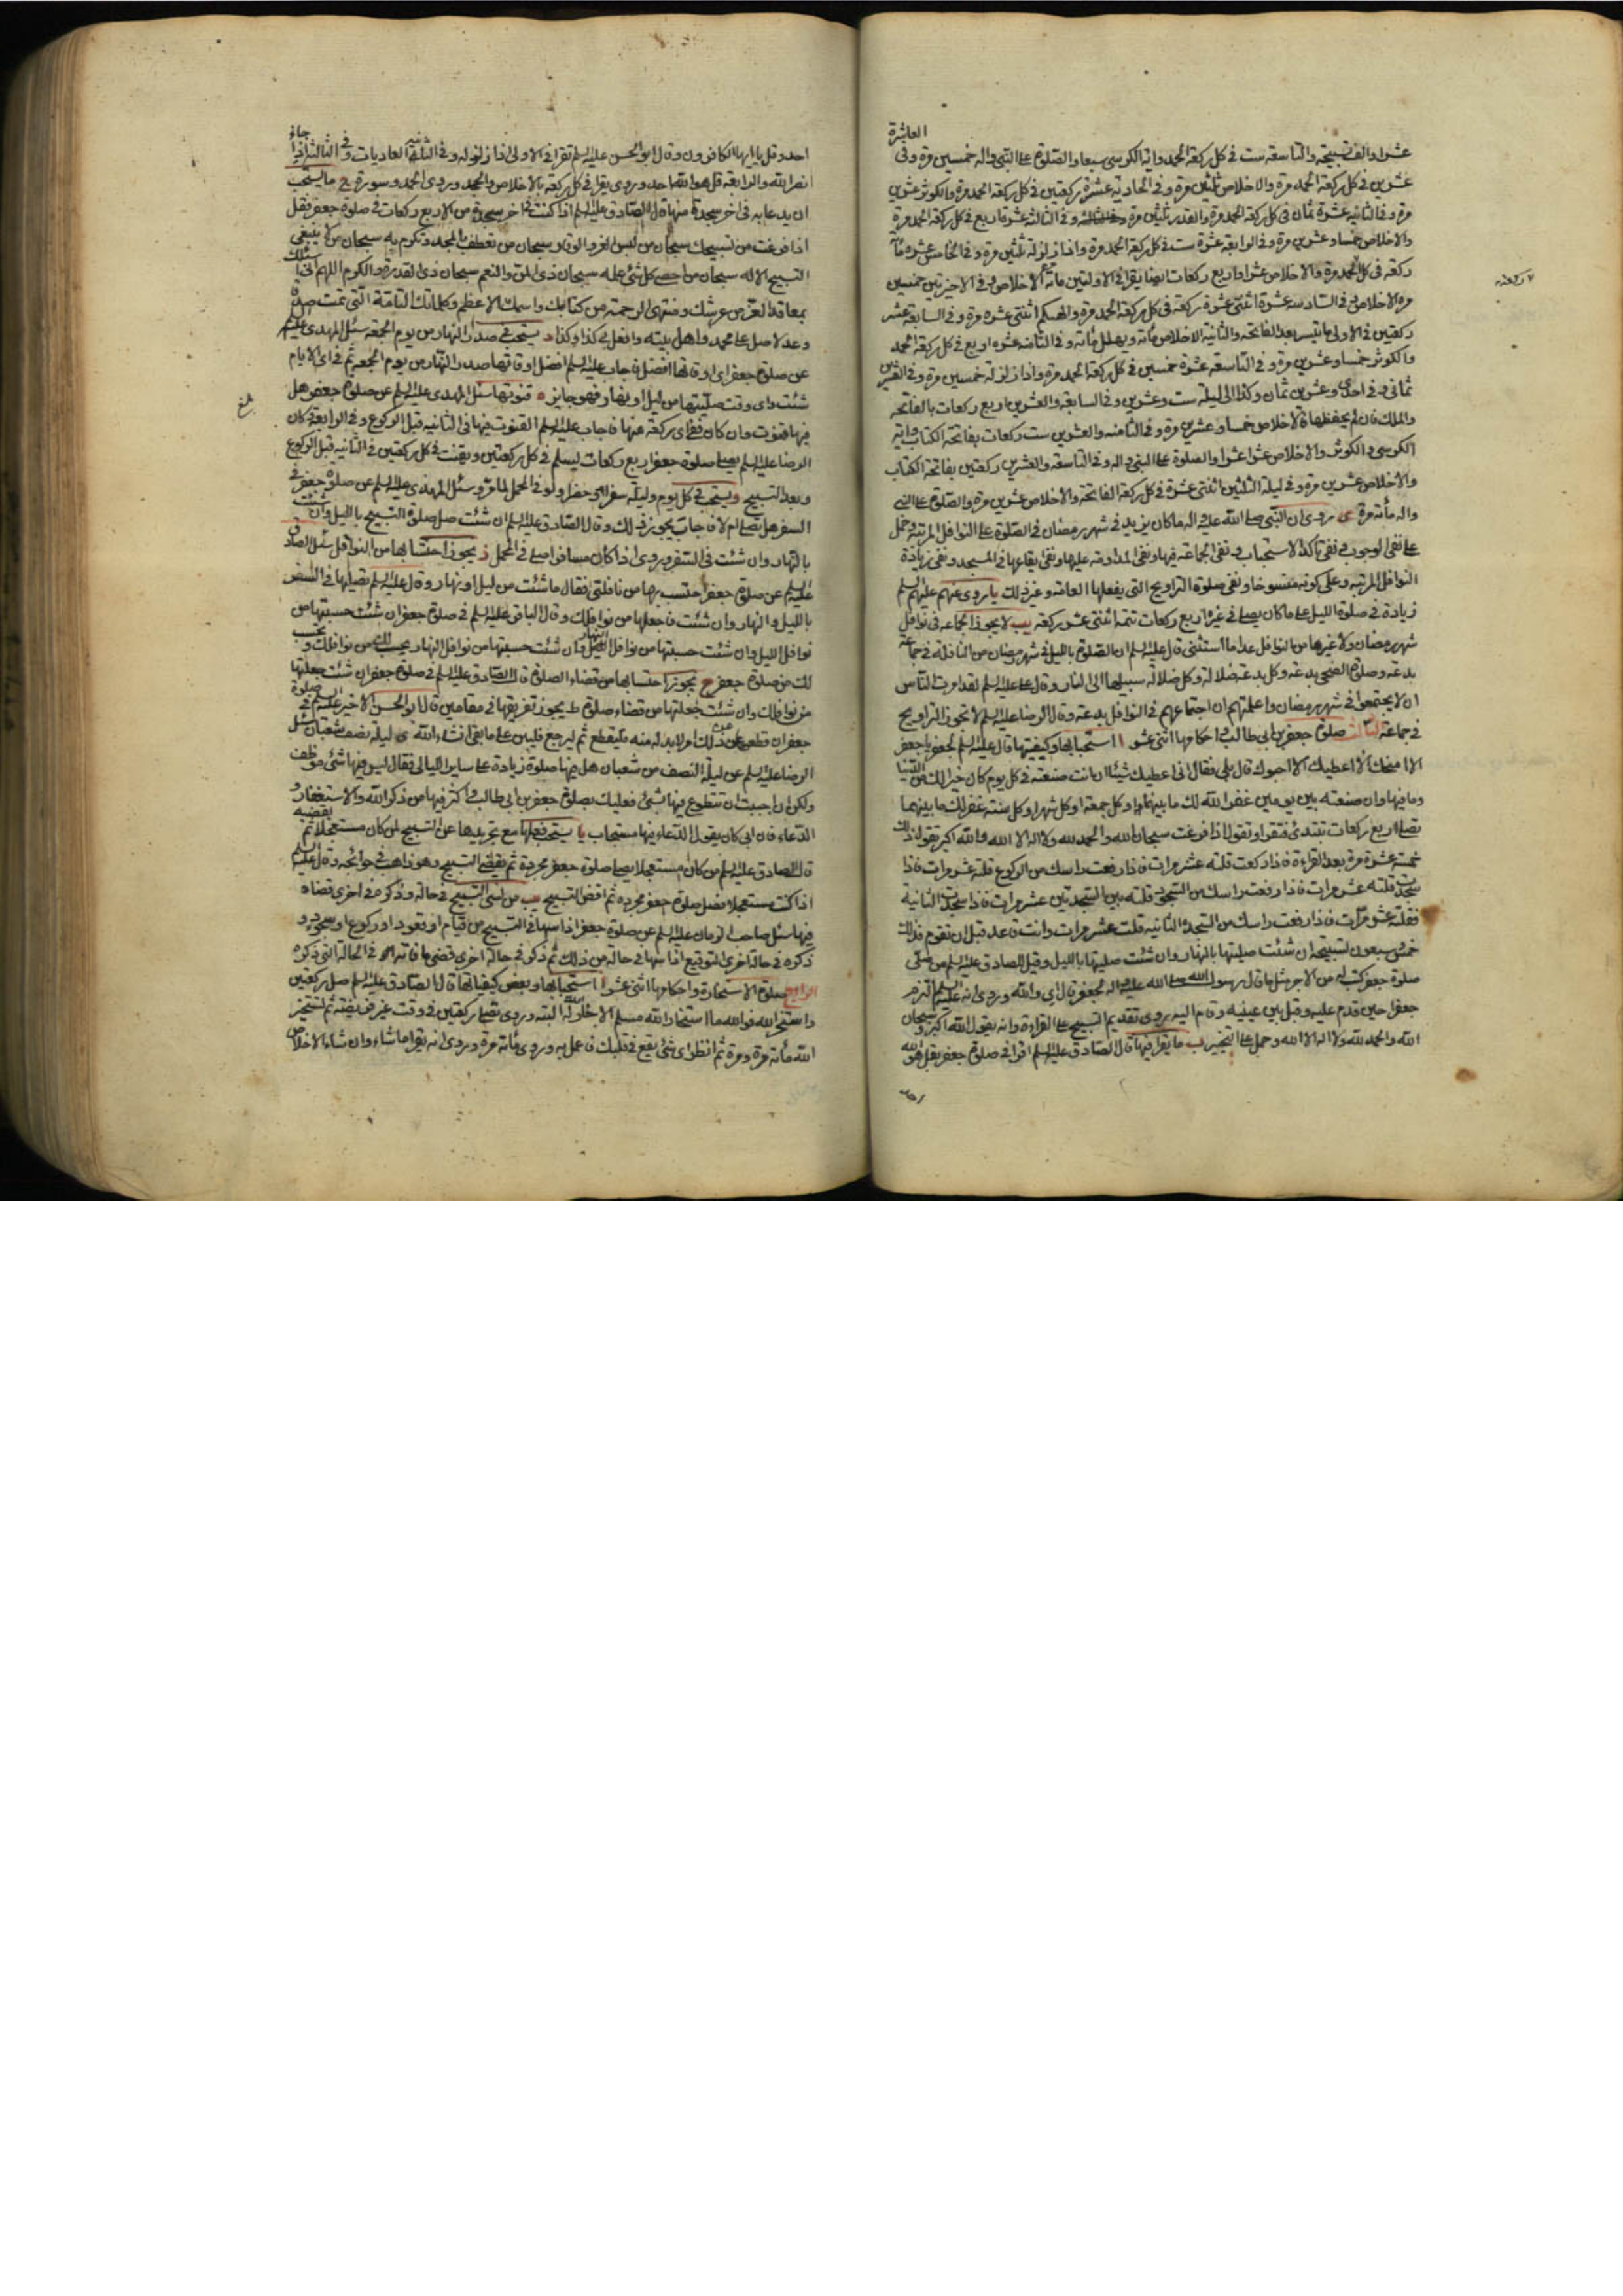 العاشرة
عشرا والف تسبيحة والتاسعة ست في كل ركعة الحمد واية الكرسي سبعا والصلوة على النبي واله خمسين مرة وفي
عشرين في كل ركعة الحمد مرة والاخلاص ثلثين مرة وفي الحادية عشرة ركعتين في كل ركعة الحمد مرة والكوثر عشرين
مرة وفي الثانية عشرة ثمان في كل ركعة الحمد مرة والقدر ثلثين مرة وفي الثالثة عشرة اربع في كل ركعة الحمد مرة
والاخلاص خمسا وعشرين مرة وفي الرابعة عشرة ست في كل ركعة الحمد مرة واذا زلزلة ثلثين مرة وفي الخامس عشرة مأة
ركعة في كل الحمد مرة والاخلاص عشرا واربع ركعات ايضا يقرا في الاولتين مأة مرة الاخلاص وفي الاخيرتين خمسين
ركعة
مرة الاخلاص وفي السادسة عشرة اثنتي عشرة ركعة في كل ركعة الحمد مرة والهيكم اثنتي عشرة مرة وفي السابعة عشر
ركعتين في الاولى ما تيسر بعد الفاتحة والثانية الاخلاص مأة ويهلل مأة وفي الثامنة عشرة اربع في كل ركعة الحمد
والكوثر خمسا وعشرين مرة وفي التاسعة عشرة خمسين في كل ركعة الحمد مرة واذا زلزلة خمسين مرة وفي العشرين
ثماني وفي احدى وعشرين ثمان وكذا الى ليلة ست وعشرين وفي السابعة والعشرين اربع ركعات بالفاتحة
والملك فان لم يحفظها فالاخلاص خمسا وعشرين مرة وفي الثامنة والعشرين ست ركعات بفاتحة الكتاب واية
الكرسي والكوثر والاخلاص عشرا عشرا والصلوة على النبي واله وفي التاسعة والعشرين ركعتين بفاتحة الكتاب
والاخلاص عشرين مرة وفي ليلة الثلثين اثنتي عشرة في كل ركعة الفاتحة والاخلاص عشرين مرة والصلوة على النبي
واله مأة مرة ى روى ان النبي صلى الله عليه واله ما كان يزيد في شهر رمضان في الصلوة على النوافل المرتبة وحمل
على نفي الوجوب ونفي تاكد الاستحباب ونفي الجماعة فيها ونفي المداومة عليها ونفي ايقاعها في المسجد ونفي زيادة
النوافل المرتبة وعلى كونه منسوخا ونفي صلوة التراويح التي يفعلها العامة وغير ذلك يا روى عنهم عليهم السلم
زيادة في صلوة الليل على ما كان يصلي في غيره اربع ركعات تتمة اثنتي عشر ركعة يب لا يجوز الجماعة في نوافل
شهر رمضان ولا غيرها من النوافل عدا ما استثنى قال عليه السلم ان الصلوة بالليل في شهر رمضان من النافلة في جماعة
بدعة وصلوة الضحى بدعة وكل بدعة ضلالة وكل ضلالة سبيلها الى النار وقال على عليه السلم لقد امرت الناس
ان لا يجتمعوا في شهر رمضان واعلمتهم ان اجتماعهم في النوافل بدعة وقال الرضا عليه السلم لا تجوز التراويح
في جماعة الثالث صلوة جعفر بن ابي طالب واحكامها اثنى عشر ا استحبابها وكيفيتها قال عليه السلم لجعفر يا جعفر
الا امنحك الا اعطيك الا احبوك قال بلى فقال اني اعطيك شيئا ان انت صنعته في كل يوم كان خيرا لك من الدنيا
وما فيها وان صنعته بين يومين غفر الله لك ما بينهما او كل جمعة او كل شهر او كل سنة غفر لك ما بينهما
تصلي اربع ركعات تبتدئ فتقرأ وتقول اذا فرغت سبحان الله والحمد لله ولا اله الا الله والله اكبر تقول ذلك
خمسة عشرة مرة بعد القراءة فاذا ركعت قلته عشر مرات فاذا رفعت راسك من الركوع قلته عشر مرات فاذا
سجدت قلته عشر مرات فاذا رفعت راسك من السجود قلته بين السجدتين عشر مرات فاذا سجدت الثانية
فقلته عشر مرات فاذا رفعت راسك من السجدة الثانية قلت عشر مرات وانت قاعد قبل ان تقوم فذلك
خمس وسبعون تسبيحة ان شئت صليتها بالنهار وان شئت صليتها بالليل وقيل للصادق عليه السلم من صلى
صلوة جعفر كتب له من الاجر مثل ما قال رسول الله صلى الله عليه واله لجعفر قال اي والله وروى انه عليه السلم التزم
جعفرا حين قدم عليه وقبل بين عينيه وقام اليه وروى تقديم التسبيح على القراءة وانه يقول الله اكبر وسبحان
الله والحمد لله ولا اله الا الله وحمل على التخيير ب ما يقرا فيها قال الصادق عليه السلم اقرا في صلوة جعفر بقل هو الله
احد
احد وقل يا ايها الكافرون وقال ابو الحسن عليه السلم تقرا في الاولى اذا زلزلة وفي الثانية العاديات وفي الثالثة اذا جاء
نصر الله والرابعة قل هو الله احد وروى يقرا في كل ركعة بالاخلاص والحمد وروى الحمد وسورة ج ما يستحب
ان يدعا به في اخر سجدة منها قال الصادق عليه السلم اذا كنت في اخر سجدة من الاربع ركعات في صلوة جعفر فقل
اذا فرغت من تسبيحك سبحان من لبس العز والوقار سبحان من تعطف بالمجد وتكرم به سبحان من لا ينبغي
التسبيح الا له سبحان من احصى كل شئ علمه سبحان ذي المن والنعم سبحان ذي القدرة والكرم اللهم اني اسئلك
بمعاقد العز من عرشك ومنتهى الرحمة من كتابك واسمك الاعظم وكلماتك التامة التي تمت صدقا
وعدلا صل على محمد واهل بيته وافعل بي كذا وكذا د يستحب في صدر النهار من يوم الجمعة سئل المهدي عليه السلم
عن صلوة جعفر اي اوقاتها افضل فاجاب عليه السلم افضل اوقاتها صدر النهار من يوم الجمعة ثم في اي الايام
شئت واي وقت صليتها من ليل او نهار فهو جايز ه قنوتها سئل المهدي عليه السلم عن صلوة جعفر هل
بلغ
فيها قنوت وان كان ففي اي ركعة منها فاجاب عليه السلم القنوت فيها في الثانية قبل الركوع وفي الرابعة وكان
الرضا عليه السلم يصلي صلوة جعفر اربع ركعات يسلم في كل ركعتين ويقنت في كل ركعتين في الثانية قبل الركوع
وبعد التسبيح و يستحب في كل يوم وليلة سفرا وحضرا ولو في المحمل لما مر وسئل المهدي عليه السلم عن صلوة جعفر في
السفر هل تصلى ام لا فاجاب يجوز ذلك وقال الصادق عليه السلم ان شئت صل صلوة التسبيح بالليل وان شئت
بالنهار وان شئت في السفر وروى اذا كان مسافرا صلى في المحمل ز يجوز احتسابها من النوافل سئل الصادق
عليه السلم عن صلوة جعفر احتسب بها من نافلتي فقال ما شئت من ليل او نهار وقال عليه السلم تصليها في السفر
بالليل والنهار وان شئت فاجعلها من نوافلك وقال الباقر عليه السلم في صلوة جعفر ان شئت حسبتها من
نوافل الليل وان شئت حسبتها من نوافل النهار وان شئت حسبتها من نوافل النهار يحسب لك من نوافلك ويحسب
لك من صلوة جعفر ح يجوز احتسابها من قضاء الصلوة قال الصادق عليه السلم في صلوة جعفر ان شئت جعلتها
من نوافلك وان شئت جعلتها من قضاء صلوة ط يجوز تفريقها في مقامين قال ابو الحسن الاخير عليه السلم في صلوة
جعفر ان قطعه عن ذلك امر لا بد له منه فليقطع ثم ليرجع فليبن على ما بقى انشاء الله ى ليلة نصف شعبان سئل
الرضا عليه السلم عن ليلة النصف من شعبان هل فيها صلوة زيادة على ساير الليالي فقال ليس فيها شئ موظف
ولكن ان احببت ان تتطوع فيها شئ فعليك بصلوة جعفر بن ابي طالب واكثر فيها من ذكر الله والاستغفار و
الدعاء فان ابي كان يقول الدعاء فيها مستجاب يا يستحب فعلها مع تجريدها عن التسبيح لمن كان مستعجلا ثم يقضيه
قال الصادق عليه السلم من كان مستعجلا يصلي صلوة جعفر مجردة ثم يقضي التسبيح وهو ذاهب في حوائجه وقال عليه السلم
اذا كنت مستعجلا فصل صلوة جعفر مجردة ثم اقض التسبيح يب من نسي التسبيح في حالة وذكره في اخرى قضاه
فيها سئل صاحب الزمان عليه السلم عن صلوة جعفر اذا سها في التسبيح من قيام او قعود او ركوع او سجود و
ذكره في حالة اخرى التوقيع اذا سها في حالة من ذلك ثم ذكر في حالة اخرى قضى ما فاته في الحالة التي ذكره
الرابع صلوة الاستخارة واحكامها اثنى عشر ا استحبابها وبعض كيفياتها قال الصادق عليه السلم صل ركعتين
واستخر الله فو الله ما استخار الله مسلم الا خار الله له البتة وروى تصلي ركعتين في وقت غير فريضة ثم تستخير
الله مأة مرة ومرة ثم انظر اي شئ يقع في قلبك فاعمل به وروى مأة مرة وروى انه يقرا ما شاء وان شاء الاخلاص